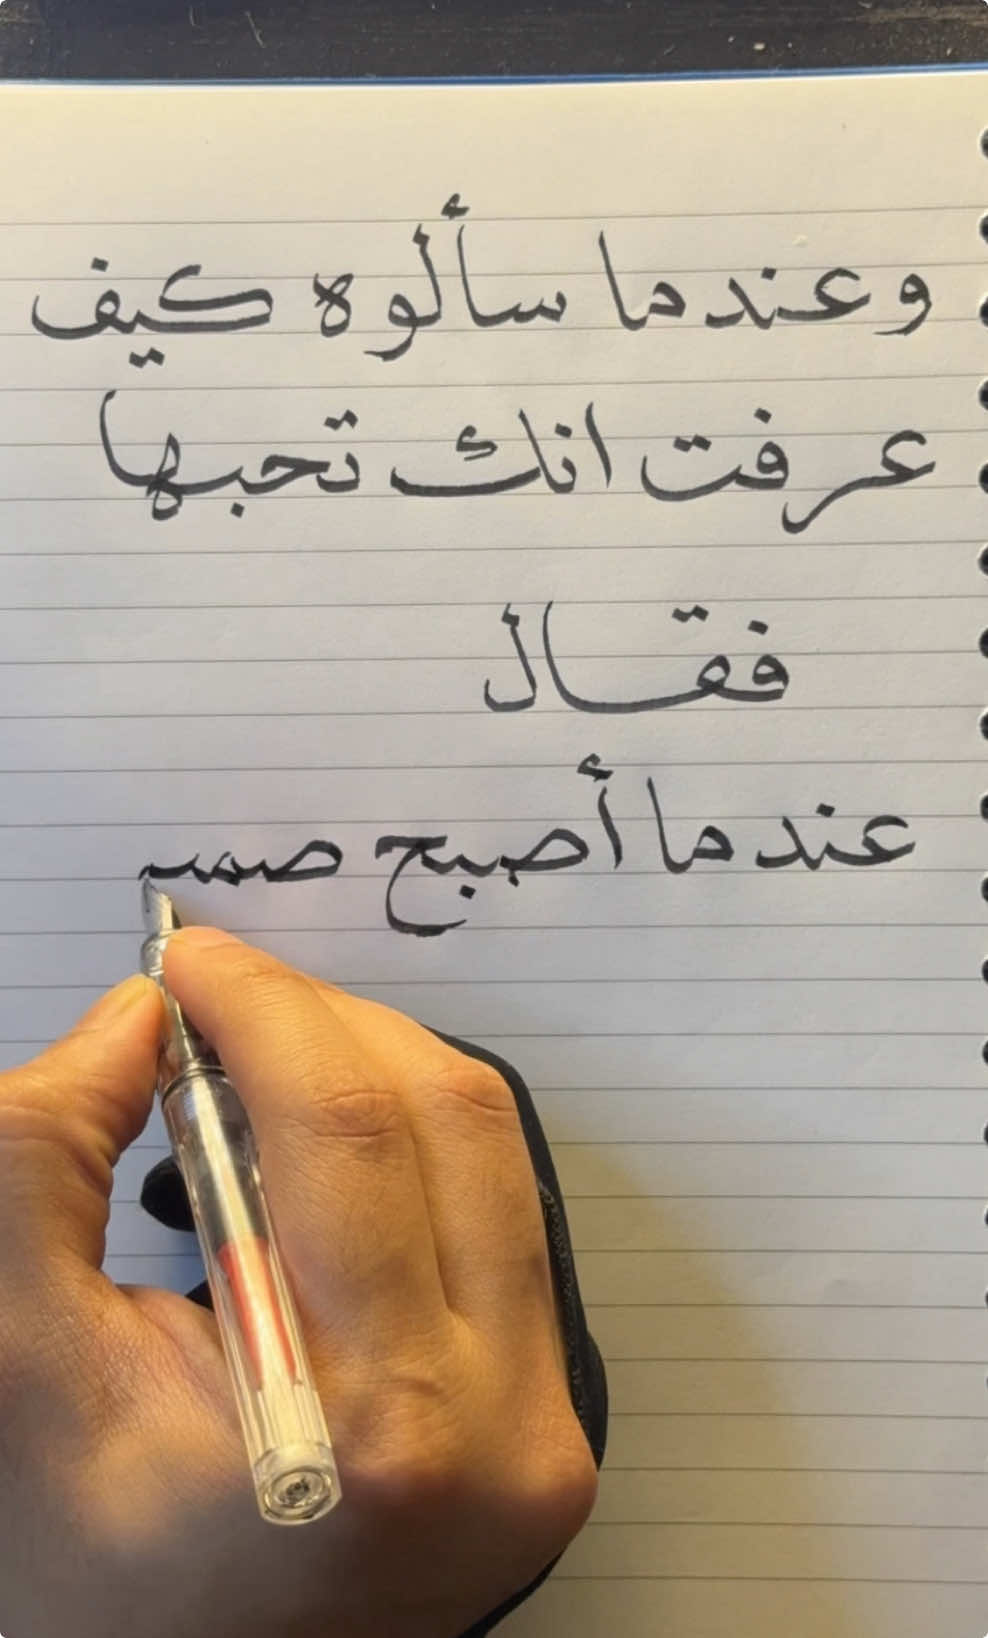 وعندما سألوه كيف
عرفت انك تحبها
فقال
عندما أصبح